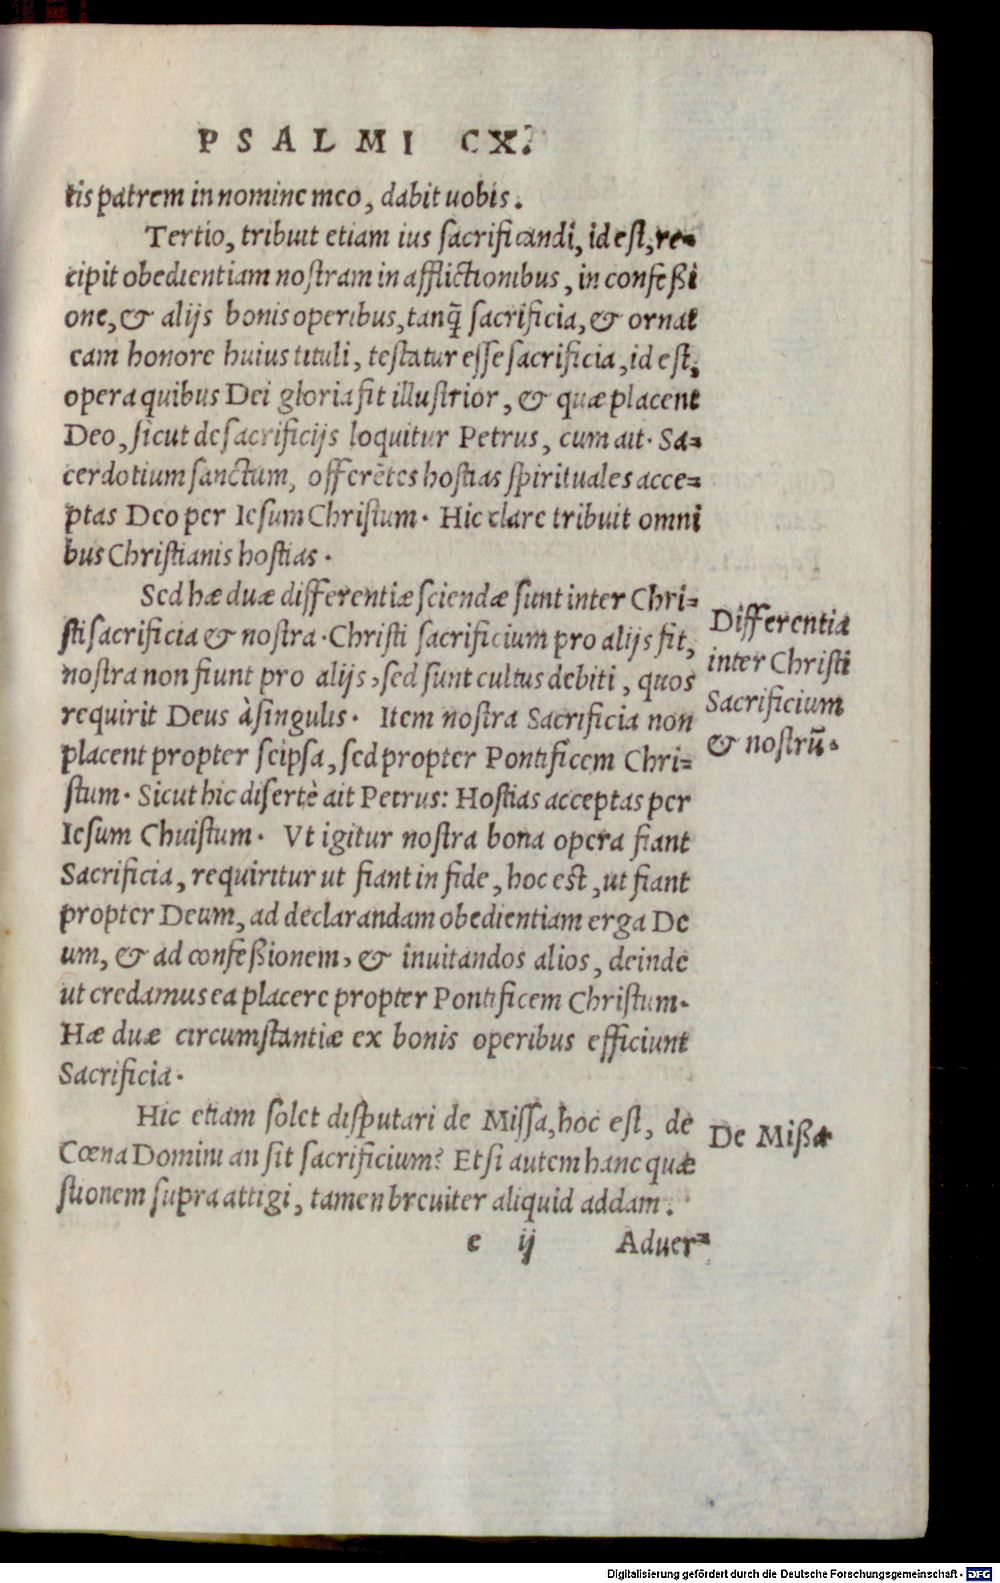 PSALMI CX.
tis patrem in nomine meo, dabit uobis.
Tertio, tribuit etiam ius sacrificandi, id est, re-
cipit obedientiam nostram in afflictionibus, in confeßi
one, & alijs bonis operibus, tanq̃ sacrificia, & ornat
eam honore huius tituli, testatur esse sacrificia, id est,
opera quibus Dei gloria fit illustrior, & quæ placent
Deo, sicut de sacrificijs loquitur Petrus, cum ait. Sa-
cerdotium sanctum, offerẽtes hostias spirituales acce-
ptas Deo per Iesum Christum. Hic clare tribuit omni
bus Christianis hostias.
Sed hæ duæ differentiæ sciendæ sunt inter Chri-
sti sacrificia & nostra. Christi sacrificium pro alijs fit,
nostra non fiunt pro alijs, sed sunt cultus debiti, quos
requirit Deus à singulis. Item nostra Sacrificia non
placent propter seipsa, sed propter Pontificem Chri-
stum. Sicut hic disertè ait Petrus: Hostias acceptas per
Iesum Chuistum. Vt igitur nostra bona opera fiant
Sacrificia, requiritur ut fiant in fide, hoc est, ut fiant
propter Deum, ad declarandam obedientiam erga De
um, & ad confeßionem, & inuitandos alios, deinde
ut credamus ea placere propter Pontificem Christum.
Hæ duæ circumstantiæ ex bonis operibus efficiunt
Sacrificia.
Hic etiam solet disputari de Missa, hoc est, de
Cœna Domini an sit sacrificium? Etsi autem hanc quæ
stionem supra attigi, tamen breuiter aliquid addam.
e ij Aduer-
Differentia
inter Christi
Sacrificium
& nostrũ.
De Mißa
Digitalisierung gefördert durch die Deutsche Forschungsgemeinschaft - DFG